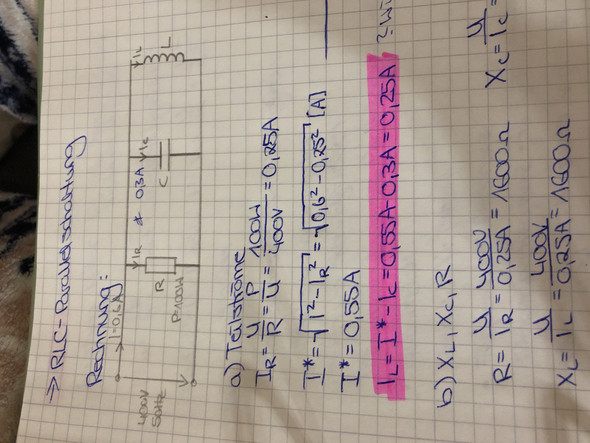 => RLC-Parallelschaltung
Rechnung:
I=0,6A
400V
50Hz
IR
R
P=100W
0,3A
IC
C
IL
L
a) Teilströme
IR = U/R = P/U = 100W/400V = 0,25A
I* = √I²-IR² = √0,6²-0,25² [A]
I* = 0,55A
IL = I* - IC = 0,55A-0,3A = 0,25A
b) XL, XC, R
R = U/IR = 400V/0,25A = 1600Ω
XL = U/IL = 400V/0,25A = 1600Ω
XC = U/IC =